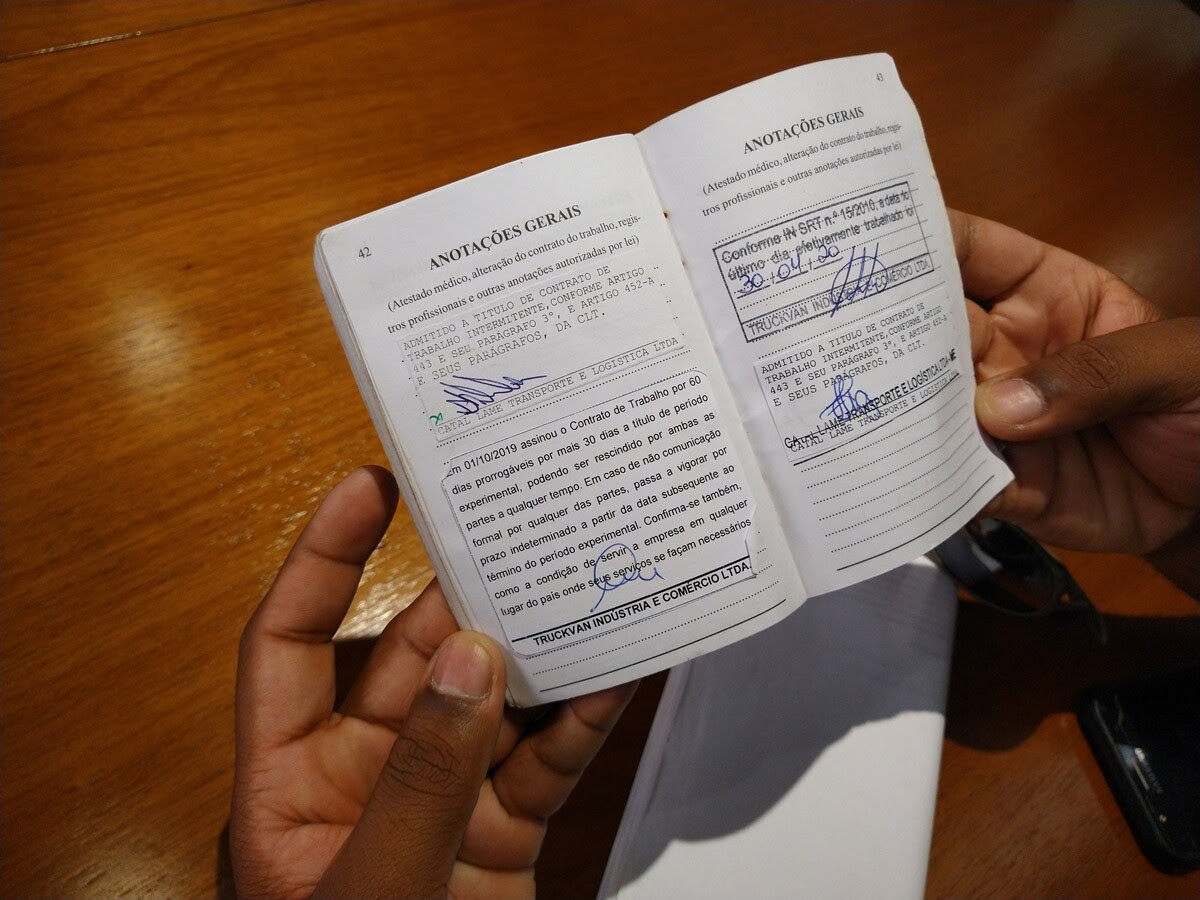 42
ANOTAÇÕES GERAIS
(Atestado médico, alteração do contrato do trabalho, regis-
tros profissionais e outras anotações autorizadas por lei)
ADMITIDO A TITULO DE CONTRATO DE
TRABALHO INTERMITENTE,CONFORME ARTIGO
443 E SEU PARÁGRAFO 3°, E ARTIGO 452-A
E SEUS PARÁGRAFOS, DA CLT.
CATAL LAME TRANSPORTE E LOGÍSTICA LTDA
Em 01/10/2019 assinou o Contrato de Trabalho por 60
dias prorrogáveis por mais 30 dias a título de período
experimental, podendo ser rescindido por ambas as
partes a qualquer tempo. Em caso de não comunicação
formal por qualquer das partes, passa a vigorar por
prazo indeterminado a partir da data subsequente ao
término do período experimental. Confirma-se também,
como a condição de servir a empresa em qualquer
lugar do país onde seus serviços se façam necessários
TRUCKVAN INDÚSTRIA E COMÉRCIO LTDA.
43
ANOTAÇÕES GERAIS
(Atestado médico, alteração do contrato do trabalho, regis-
tros profissionais e outras anotações autorizadas por lei)
Conforme IN SRT n.º 15/2010, a data do
último dia efetivamente trabalhado foi
30/04/20
TRUCKVAN INDÚSTRIA E COMÉRCIO LTDA
ADMITIDO A TITULO DE CONTRATO DE
TRABALHO INTERMITENTE,CONFORME ARTIGO
443 E SEU PARÁGRAFO 3°, E ARTIGO 452-A
E SEUS PARÁGRAFOS, DA CLT.
CATAL LAME TRANSPORTE E LOGÍSTICA LTDA-ME
CATAL LAME TRANSPORTE E LOGÍSTICA